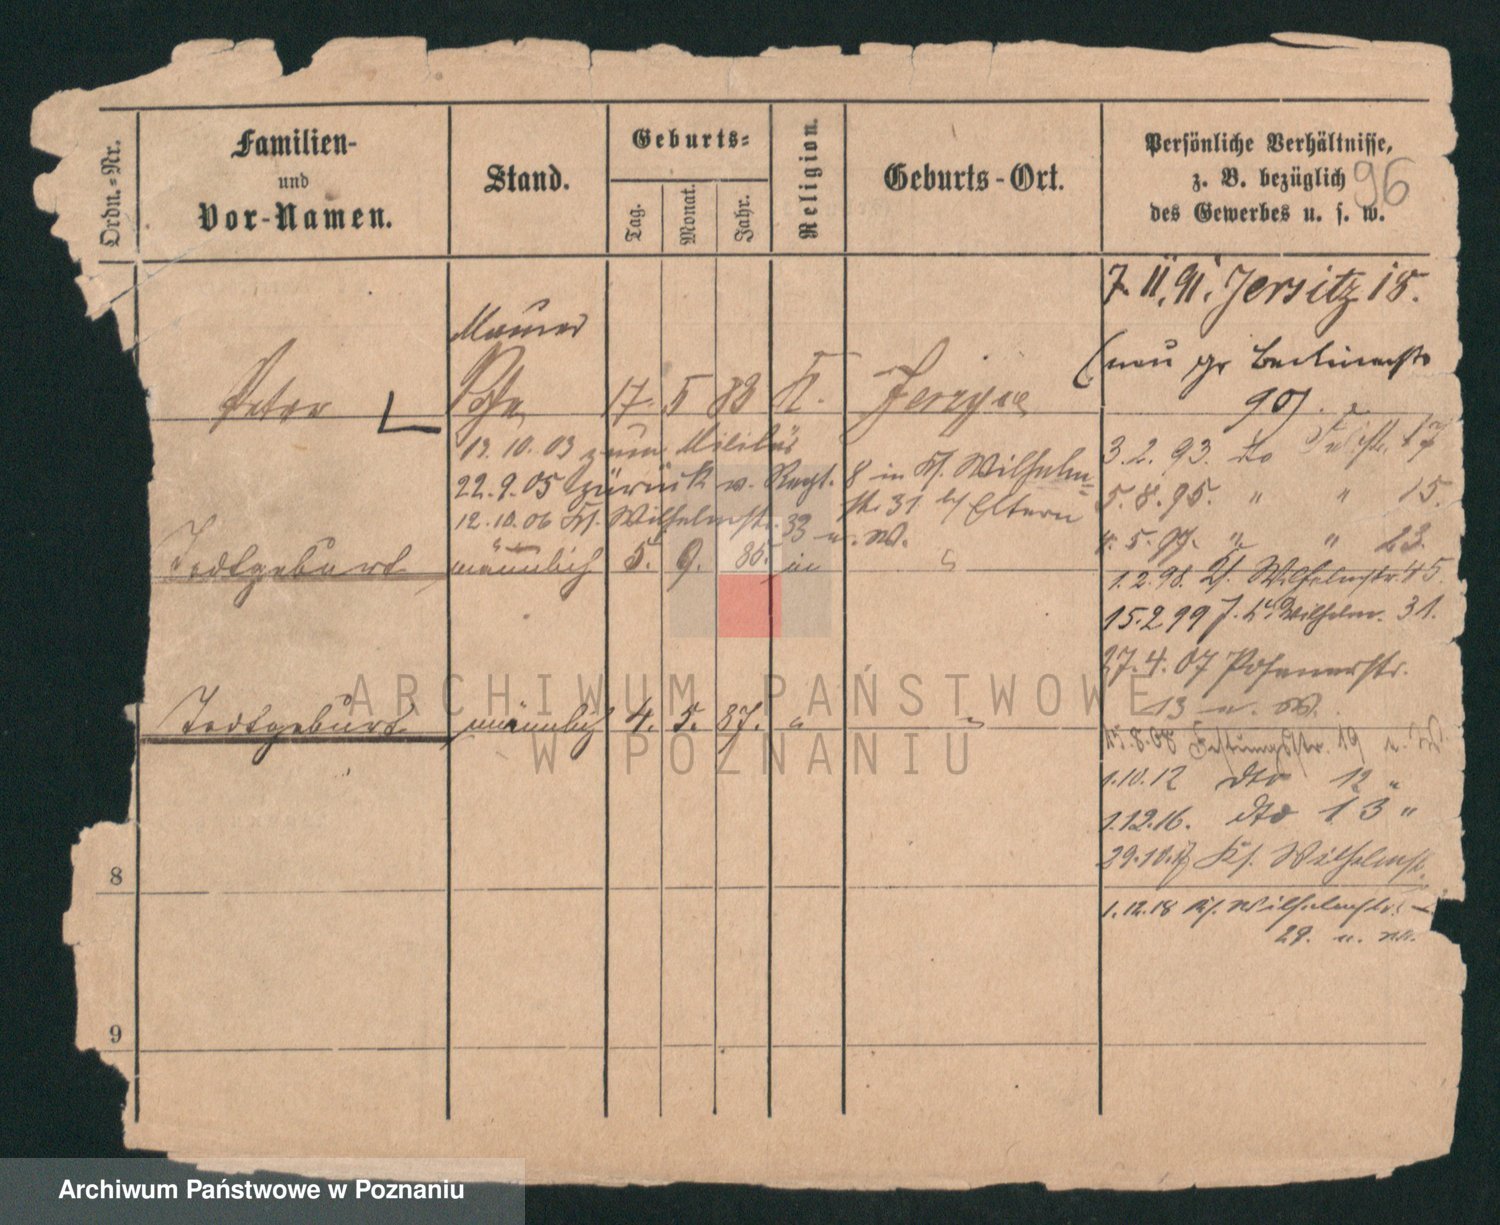 Ordn.-Nr.
Familien-
und
Vor-Namen.
Stand.
Geburts-
Tag.
Monat.
Jahr.
Religion.
Geburts-Ort.
Persönliche Verhältnisse,
z. B. bezüglich
des Gewerbes u. s. w.
96
7. 11. 91. Jersitz 18.
(neu gr Berlinerstr
90)
Maurer
Peter Sohn 17. 5 83 K. Jerzyce
12. 10. 03 zum Militär
22. 9. 05 zurück v. Regt. 8 in Ks. Wilhelm-
str. 31 b/ Eltern
12. 10. 06 Ks. Wilhelmstr. 33 u. W.
3. 2. 93. do 17
5. 8. 95. " " 15.
5. 97. " " 23.
Todtgeburt männlich 5. 9. 85.
1. 2. 98. Ks. Wilhelmstr. 45.
15. 2 99 Wilhelm. 31.
27. 4. 07 Posenerstr.
13 u. W.
Todtgeburt männlich 4. 5. 87. " "
8. 08 Festungsstr. 19 u. W.
1. 10. 12 dto 12 "
1. 12. 16. dto 13 "
29. 10. 17 Ks. Wilhelmstr.
8
1. 12. 18 Ks. Wilhelmstr.
29. u. W.
9
ARCHIWUM PAŃSTWOWE
W POZNANIU
Archiwum Państwowe w Poznaniu